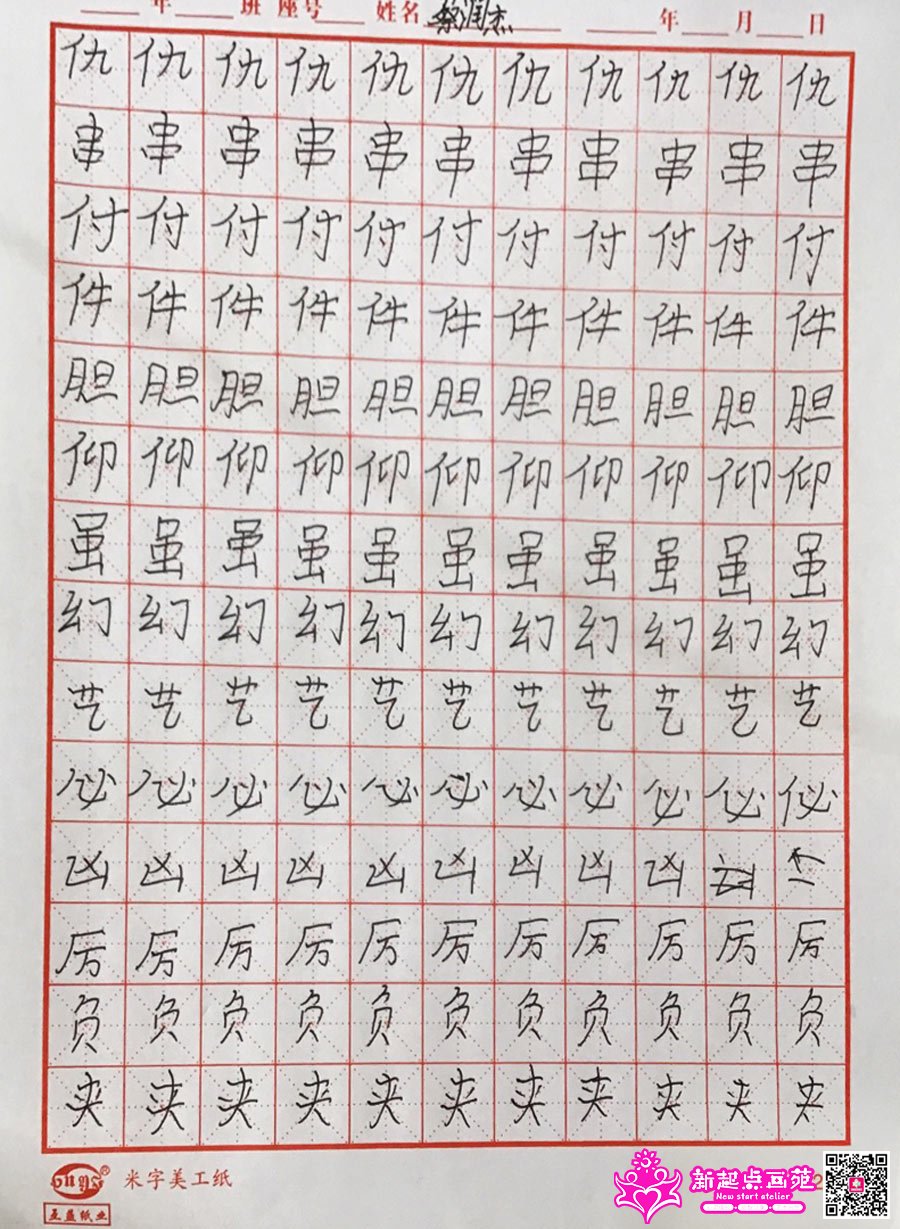 年 班 座号 姓名 蔡润杰 年 月 日
仇 仇 仇 仇 仇 仇 仇 仇 仇 仇 仇
串 串 串 串 串 串 串 串 串 串 串
付 付 付 付 付 付 付 付 付 付 付
件 件 件 件 件 件 件 件 件 件 件
胆 胆 胆 胆 胆 胆 胆 胆 胆 胆 胆
仰 仰 仰 仰 仰 仰 仰 仰 仰 仰 仰
虽 虽 虽 虽 虽 虽 虽 虽 虽 虽 虽
幻 幻 幻 幻 幻 幻 幻 幻 幻 幻 幻
艺 艺 艺 艺 艺 艺 艺 艺 艺 艺 艺
佖 佖 佖 佖 佖 佖 佖 佖 佖 佖 佖
凶 凶 凶 凶 凶 凶 凶 凶 凶
厉 厉 厉 厉 厉 厉 厉 厉 厉 厉 厉
负 负 负 负 负 负 负 负 负 负 负
夹 夹 夹 夹 夹 夹 夹 夹 夹 夹 夹
米字美工纸
孟盛纸业
新起点画苑
New start atelier
2